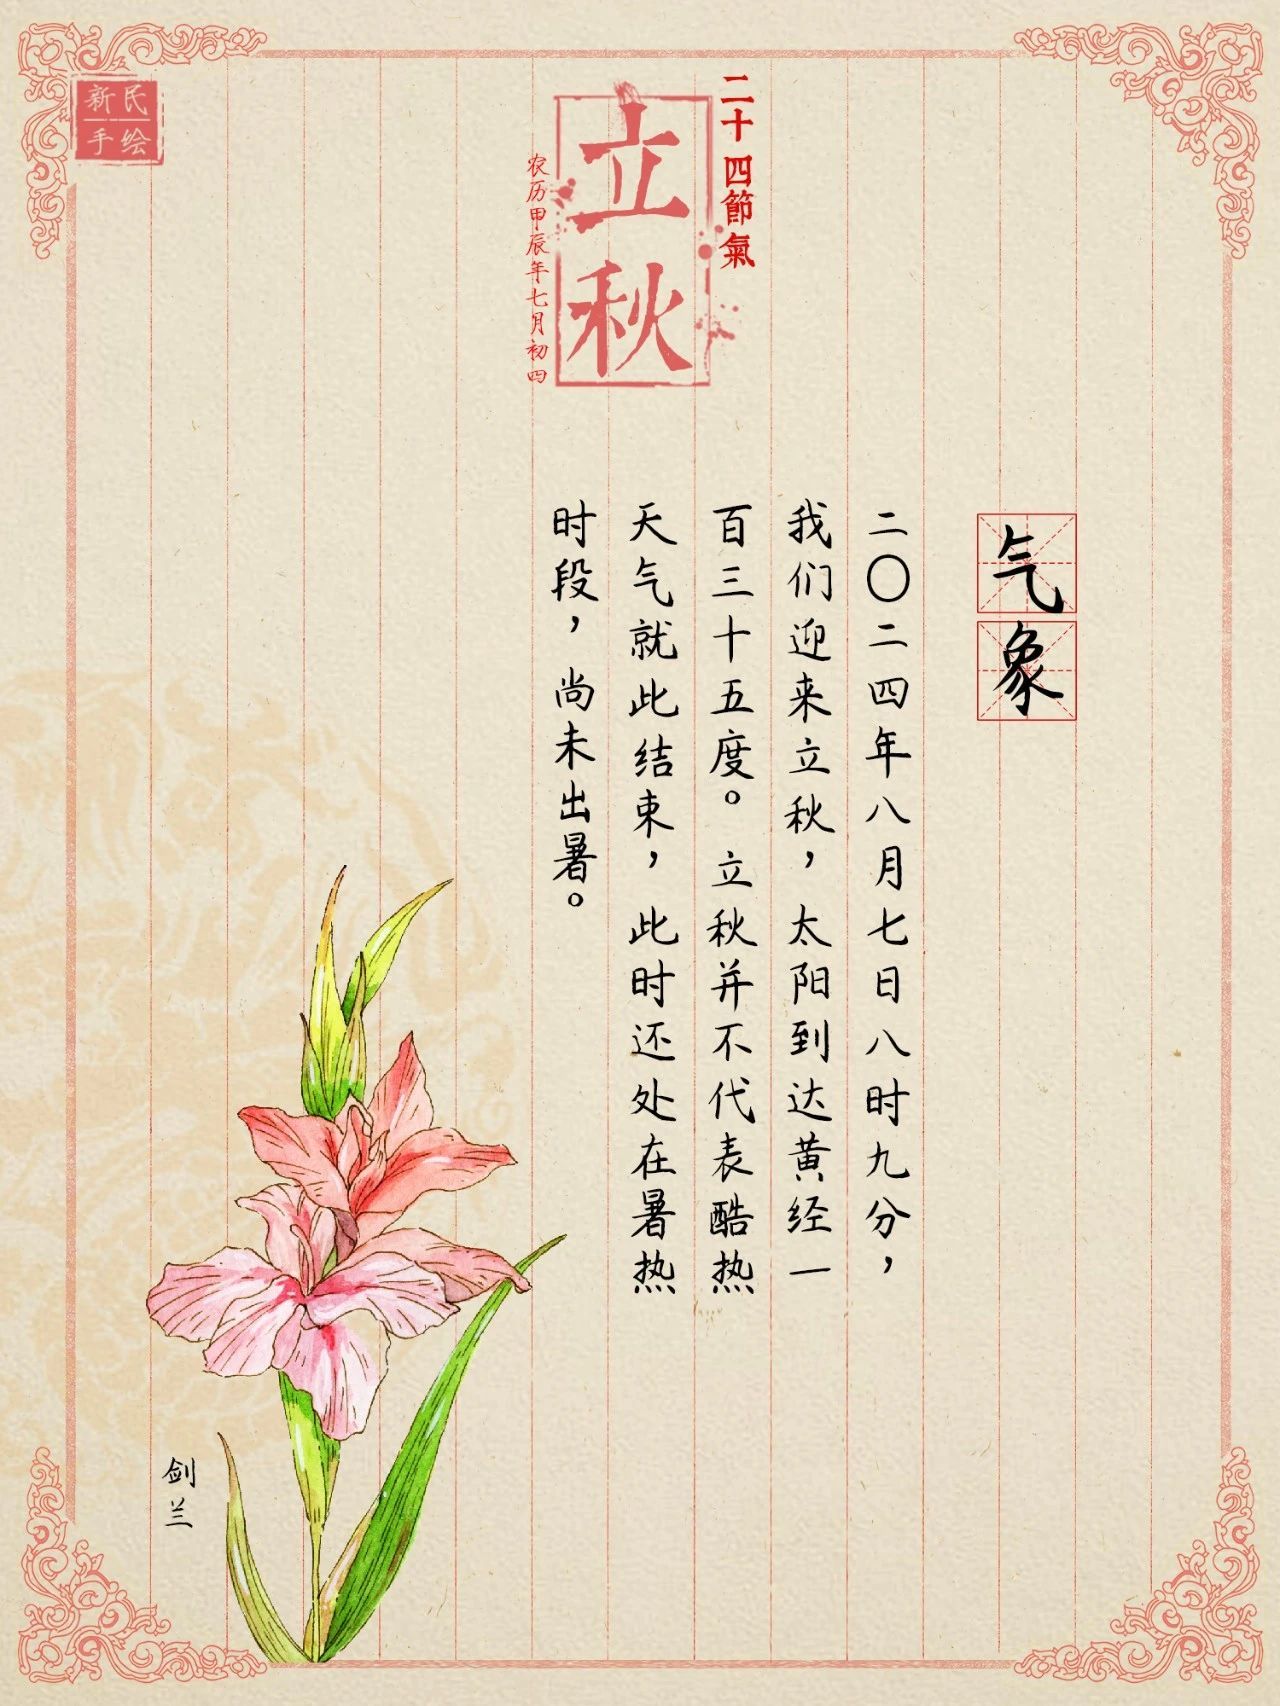 新民
手绘
二十四節氣
立秋
农历甲辰年七月初四
气象
二〇二四年八月七日八时九分，
我们迎来立秋，太阳到达黄经一
百三十五度。立秋并不代表酷热
天气就此结束，此时还处在暑热
时段，尚未出暑。
剑兰